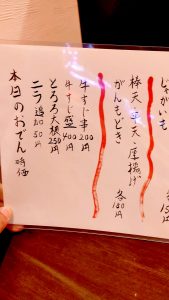 じゃがいも
棒天・平天・厚揚げ
がんもどき 各180円
牛すじ串 200円
牛すじ盛 400円
とろろ大根 250円
ニラ追加50円
本日のおでん 時価